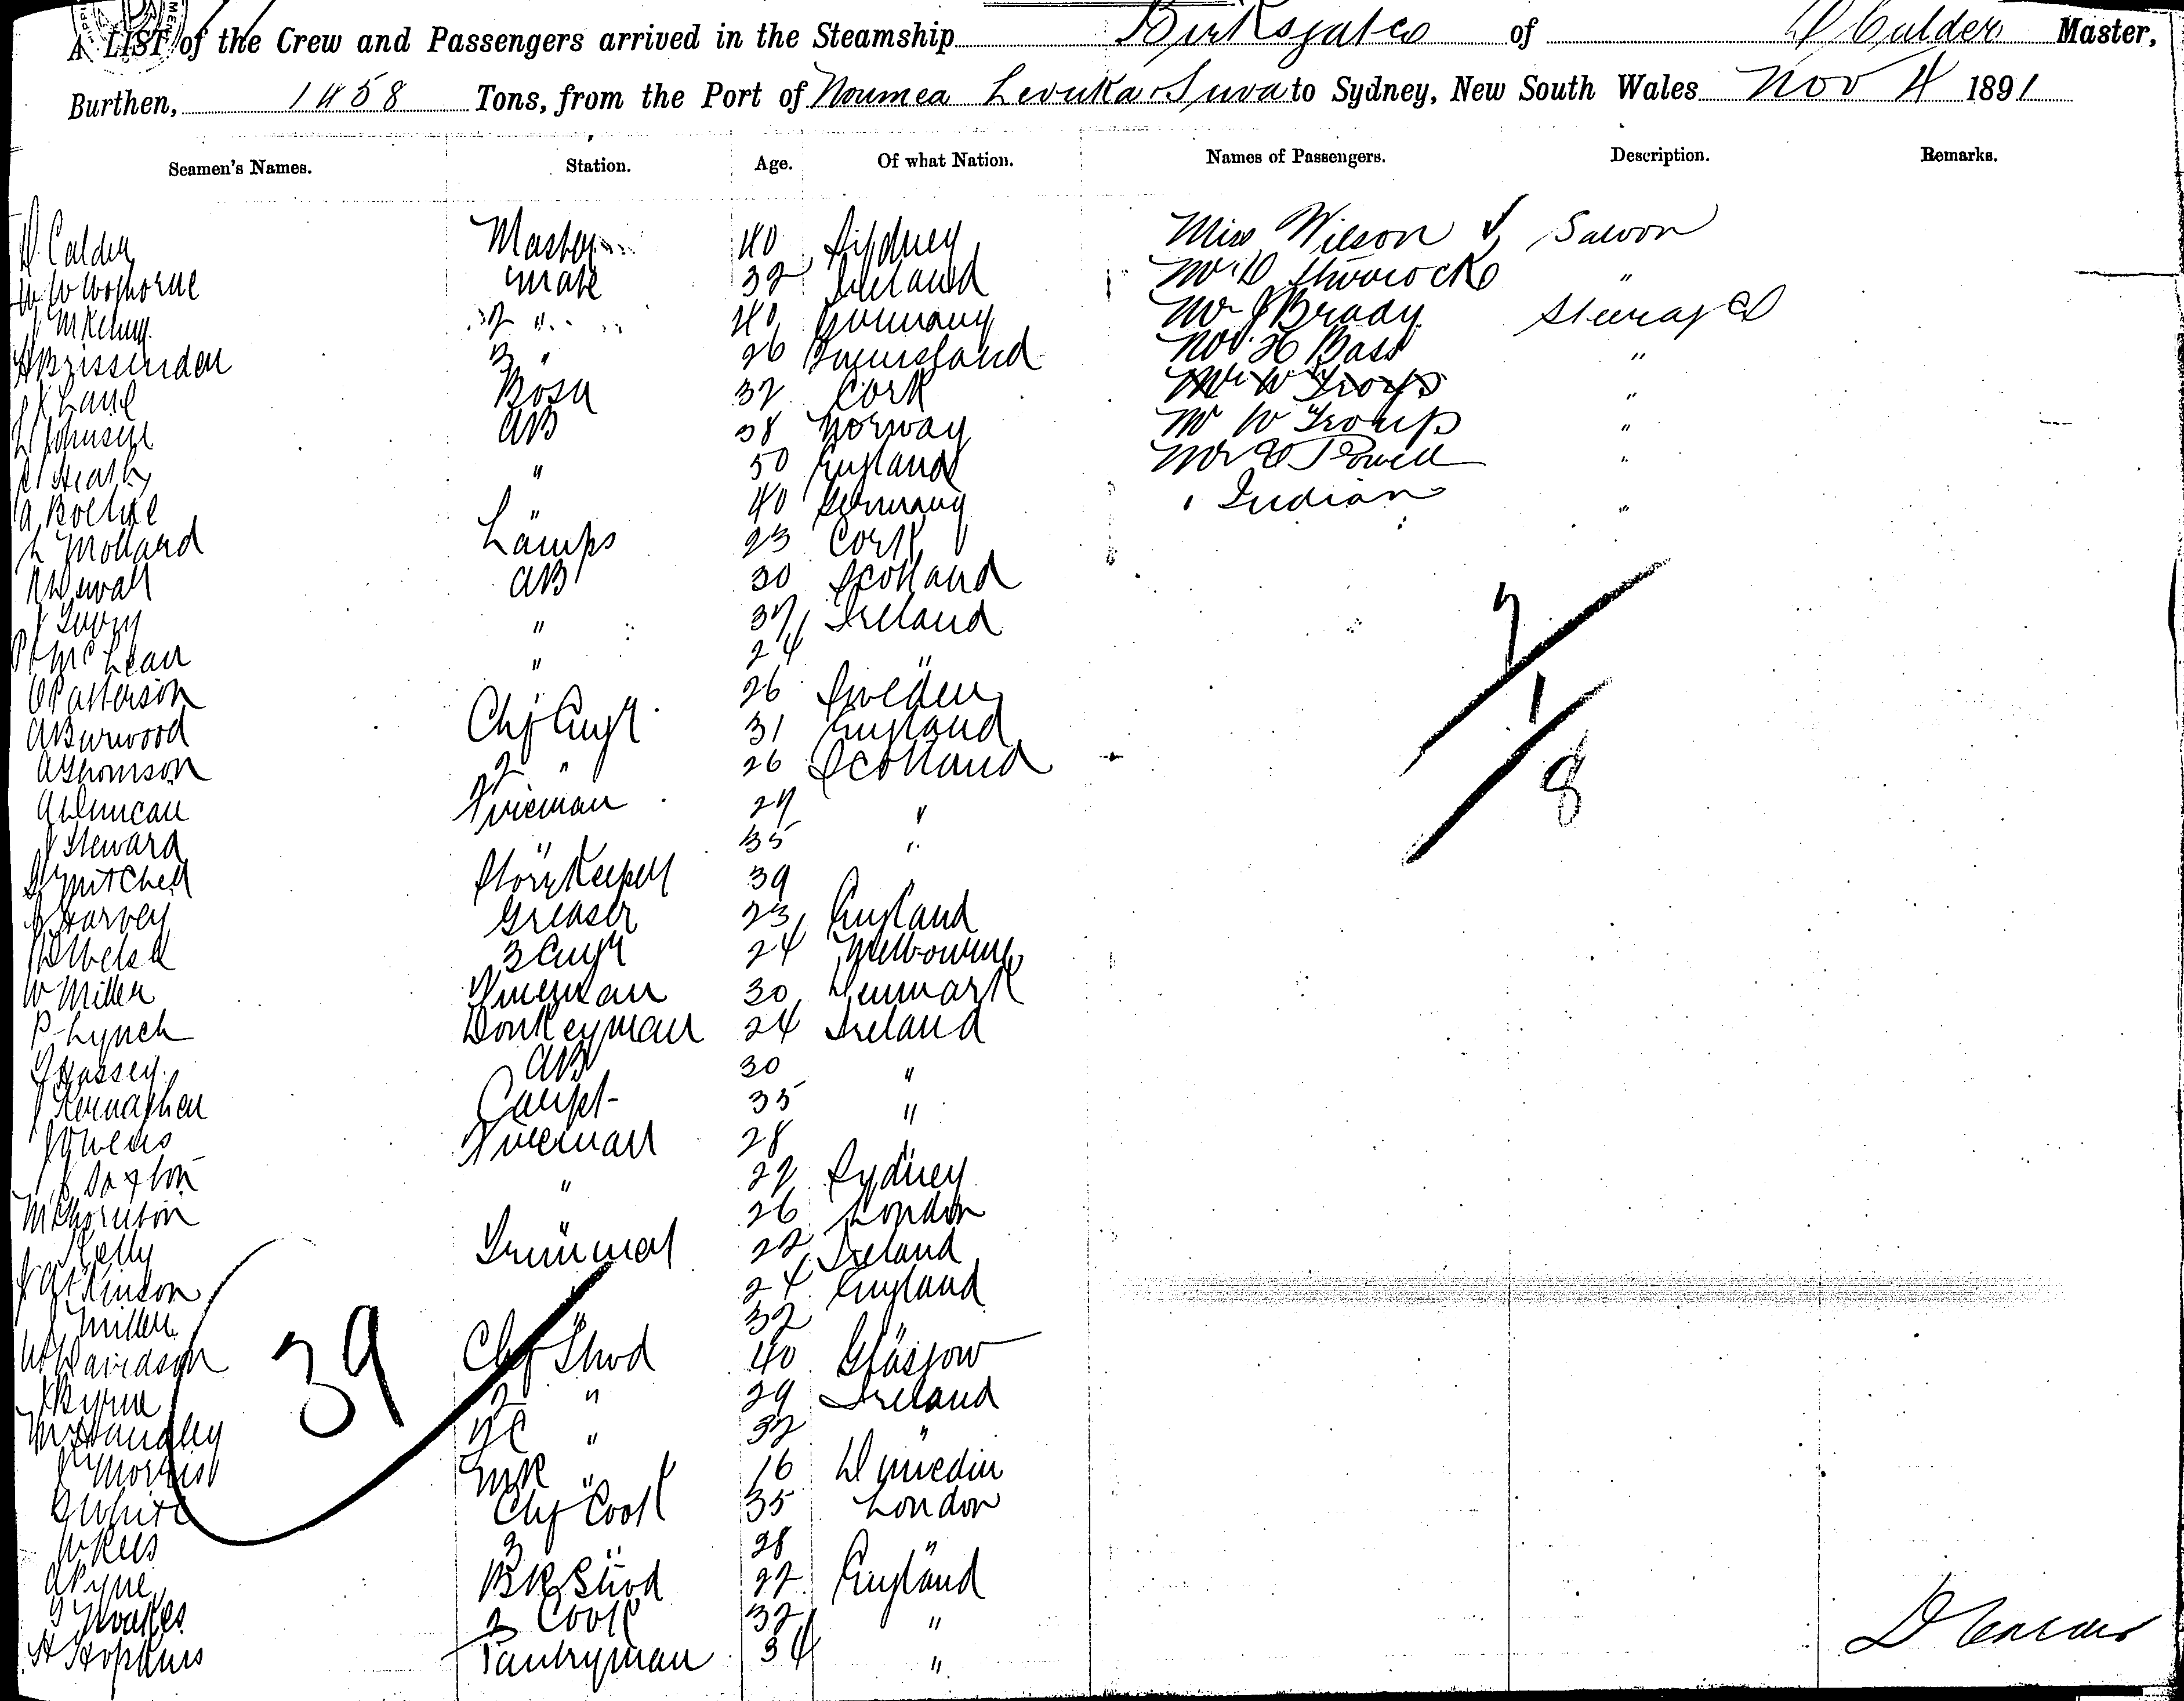 A LIST of the Crew and Passengers arrived in the Steamship Birksgate of D Calder Master,
Burthen, 1458 Tons, from the Port of Noumea Levuka & Suva to Sydney, New South Wales Nov 4 1891
Seamen's Names. Station. Age. Of what Nation. Names of Passengers. Description. Remarks.
D Calder Master 40 Sydney Miss Wilson Saloon
Mate 32 Ireland Mr "
2 " 40 Germany Mr J Brady Steerage
A Brissenden 3 " 26 Queensland Mr H Bass "
Lane Bosn 32 Cork Mr W Troup "
L Johnsen AB 38 Norway Mr W Troup "
Heath " 50 England Mr E Powell "
A " 40 Germany Indian "
L Mollard Lamps 23 Cork
R Dewall AB 30 Scotland
J " 37 Ireland
McLean " 24 "
O Patterson " 26 Sweden
A Burwood Chf Engr 31 England
A Thomson 2 " 26 Scotland
A Duncan Fireman 29 "
J Steward " 35 "
Mitchell Storekeeper 39 "
J Harvey Greaser 23 England
3 Engr 24 Melbourne
W Miller Fireman 30 Denmark
P Lynch Donkeyman 24 Ireland
Hassey AB 30 "
J Kernaghan Carpt 35 "
J Owens Fireman 28 "
J Saxton " 22 Sydney
M Thornton " 26 London
Kelly Trimmer 22 Ireland
J Atkinson " 24 England
J Miller " 32 "
W Davidson Chf Stwd 40 Glasgow
J Byrne 2 " 29 Ireland
M Handley " 32 "
Morris " 16 Dunedin
G White Chf Cook 35 London
W Rees 3 " 28 "
A Pyne Bk Stwd 22 England
G Noakes 2 Cook 32 "
H Hopkins Pantryman 34 "
7
1
8
39
D Calder